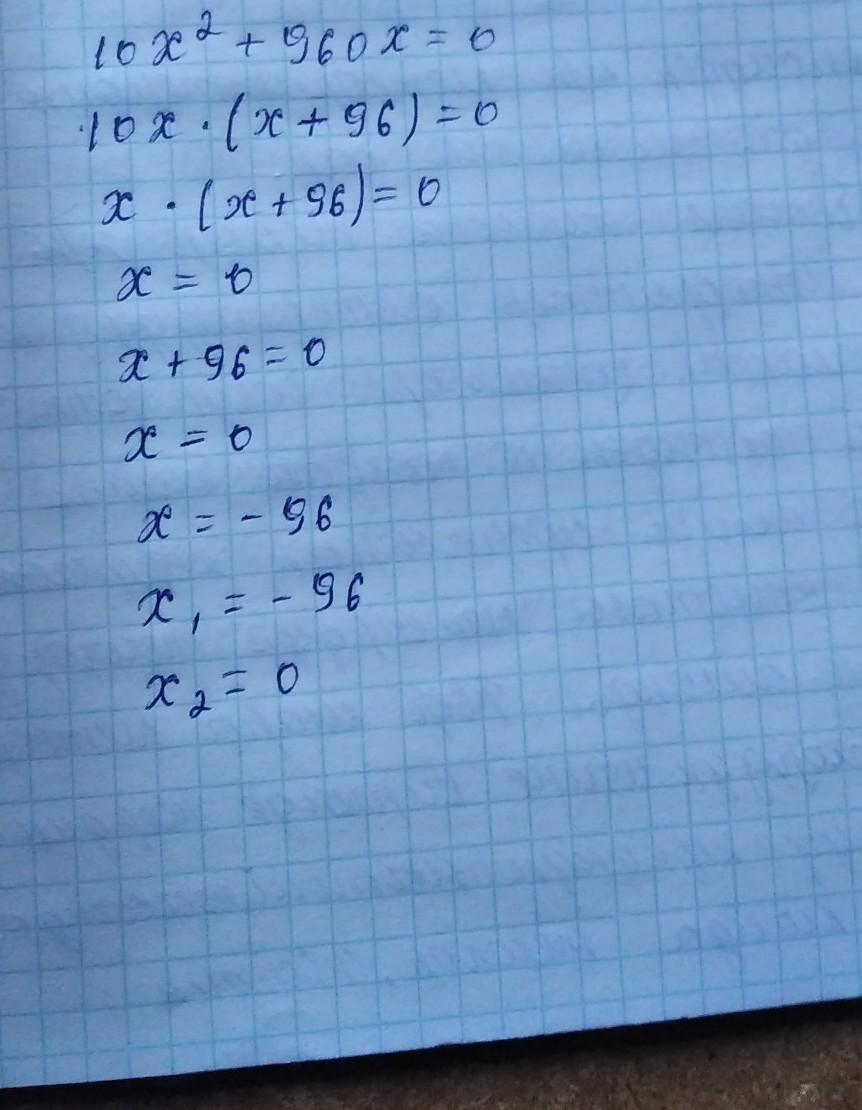 10x² + 960x = 0
10x · (x + 96) = 0
x · (x + 96) = 0
x = 0
x + 96 = 0
x = 0
x = - 96
x₁ = - 96
x₂ = 0